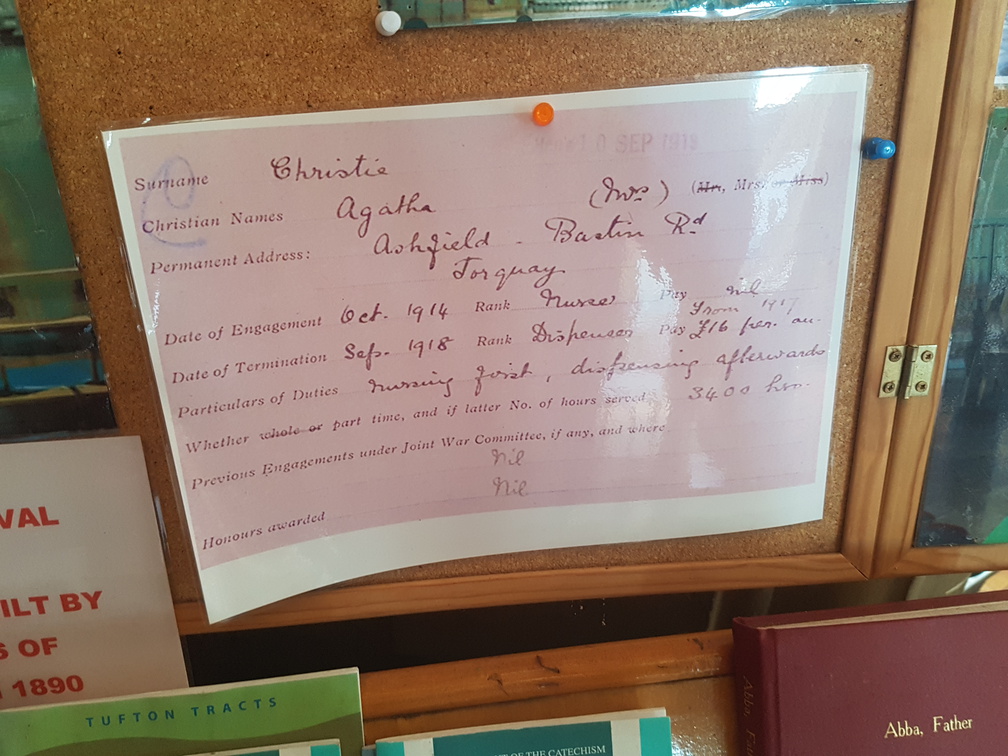 10 SEP 1918
Surname Christie
Christian Names Agatha (Mrs) (Mr, Mrs. or Miss)
Permanent Address: Ashfield - Barton Rd
Torquay
Date of Engagement Oct. 1914 Rank Nurse Pay nil
from 1917
Date of Termination Sep. 1918 Rank Dispenser Pay £16 per. an.
Particulars of Duties Nursing first, dispensing afterwards
Whether whole or part time, and if latter No. of hours served 3400 hrs.
Previous Engagements under Joint War Committee, if any, and where
Nil
Nil
Honours awarded
VAL
ILT BY
S OF
1890
TUFTON TRACTS
OF THE CATECHISM
Abba, Father
Abba, Father